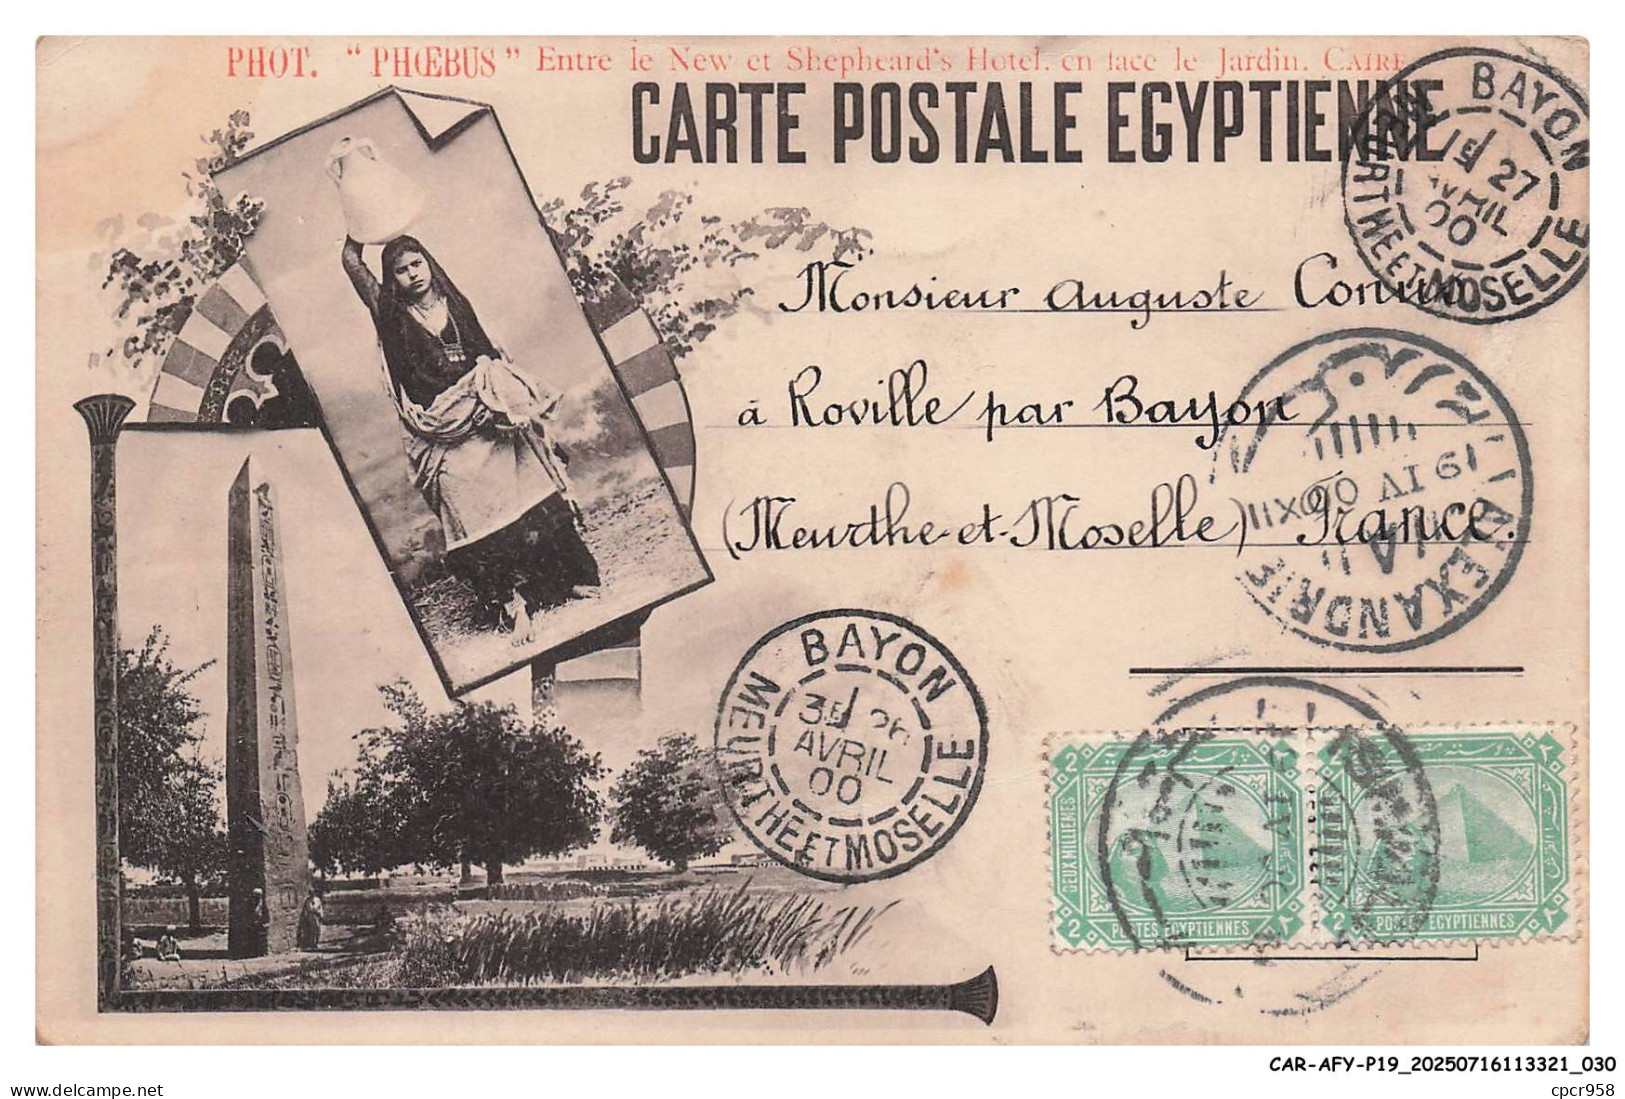 PHOT. " PHŒBUS " Entre le New et Shepheard's Hotel. en face le Jardin. CAIRE
CARTE POSTALE EGYPTIENNE
BAYON
1E 27
AVRIL
00
MEURTHE ET MOSELLE
Monsieur Auguste
à Roville par Bayon
(Meurthe-et-Moselle) France.
19 IV 00 XII
ALEXANDRIE
BAYON
3E 26
AVRIL
00
MEURTHE ET MOSELLE
2 2
DEUX MILLIEMES
2 POSTES EGYPTIENNES
2 POSTES EGYPTIENNES
CAR-AFY-P19_20250716113321_030
cpcr958